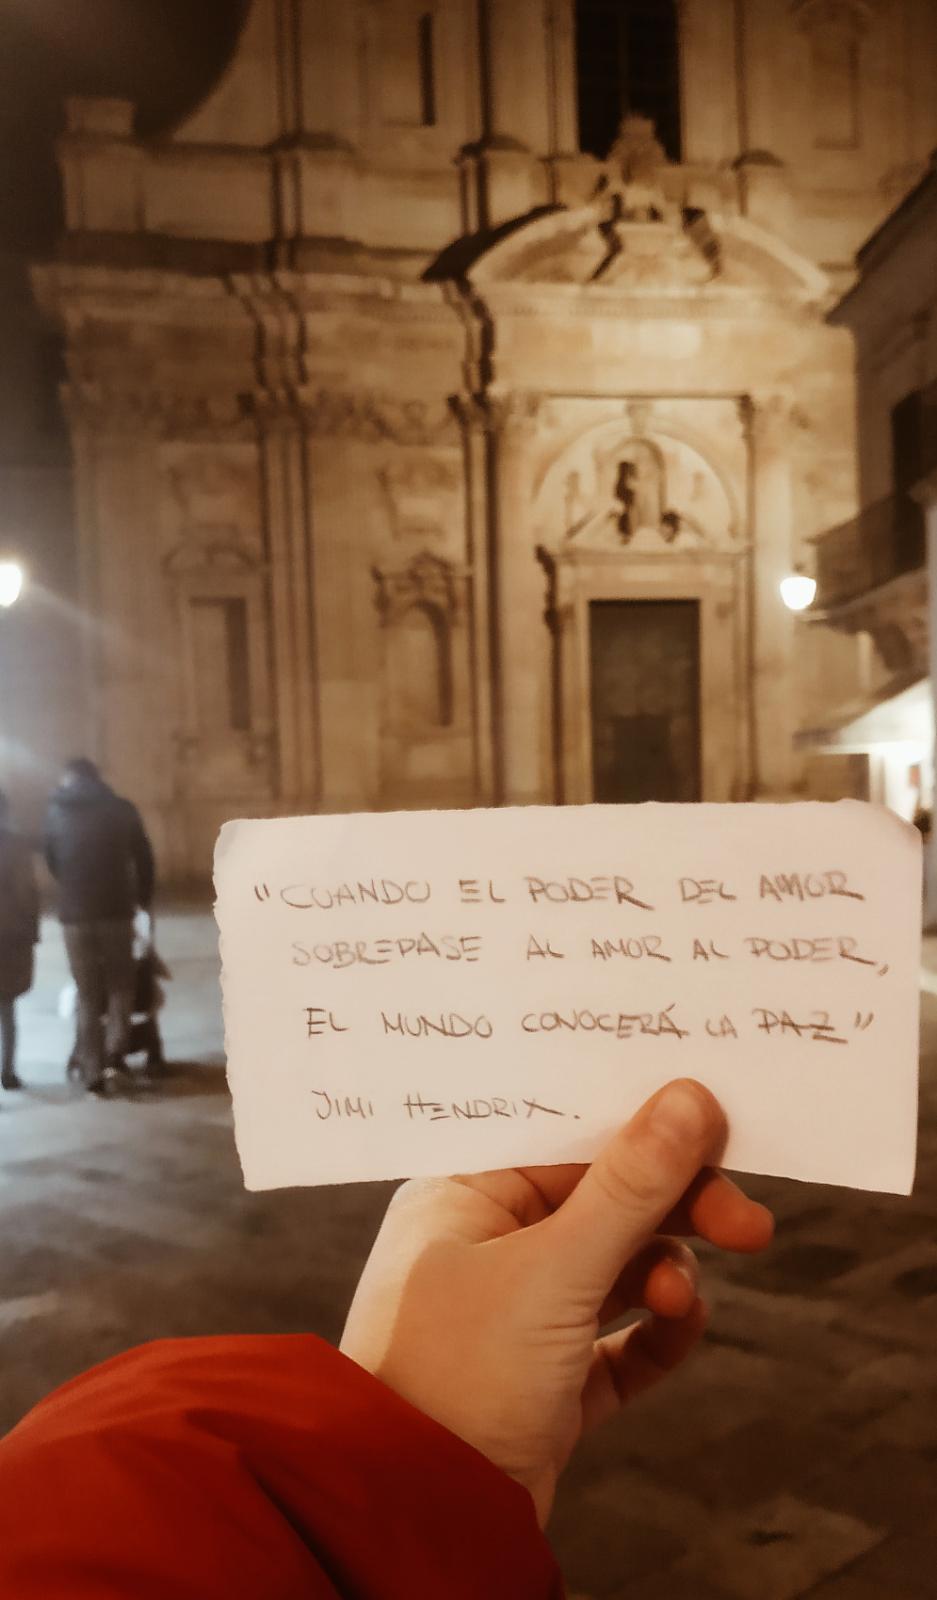 "CUANDO EL PODER DEL AMOR
SOBREPASE AL AMOR AL PODER,
EL MUNDO CONOCERÁ LA PAZ"
JIMI HENDRIX.